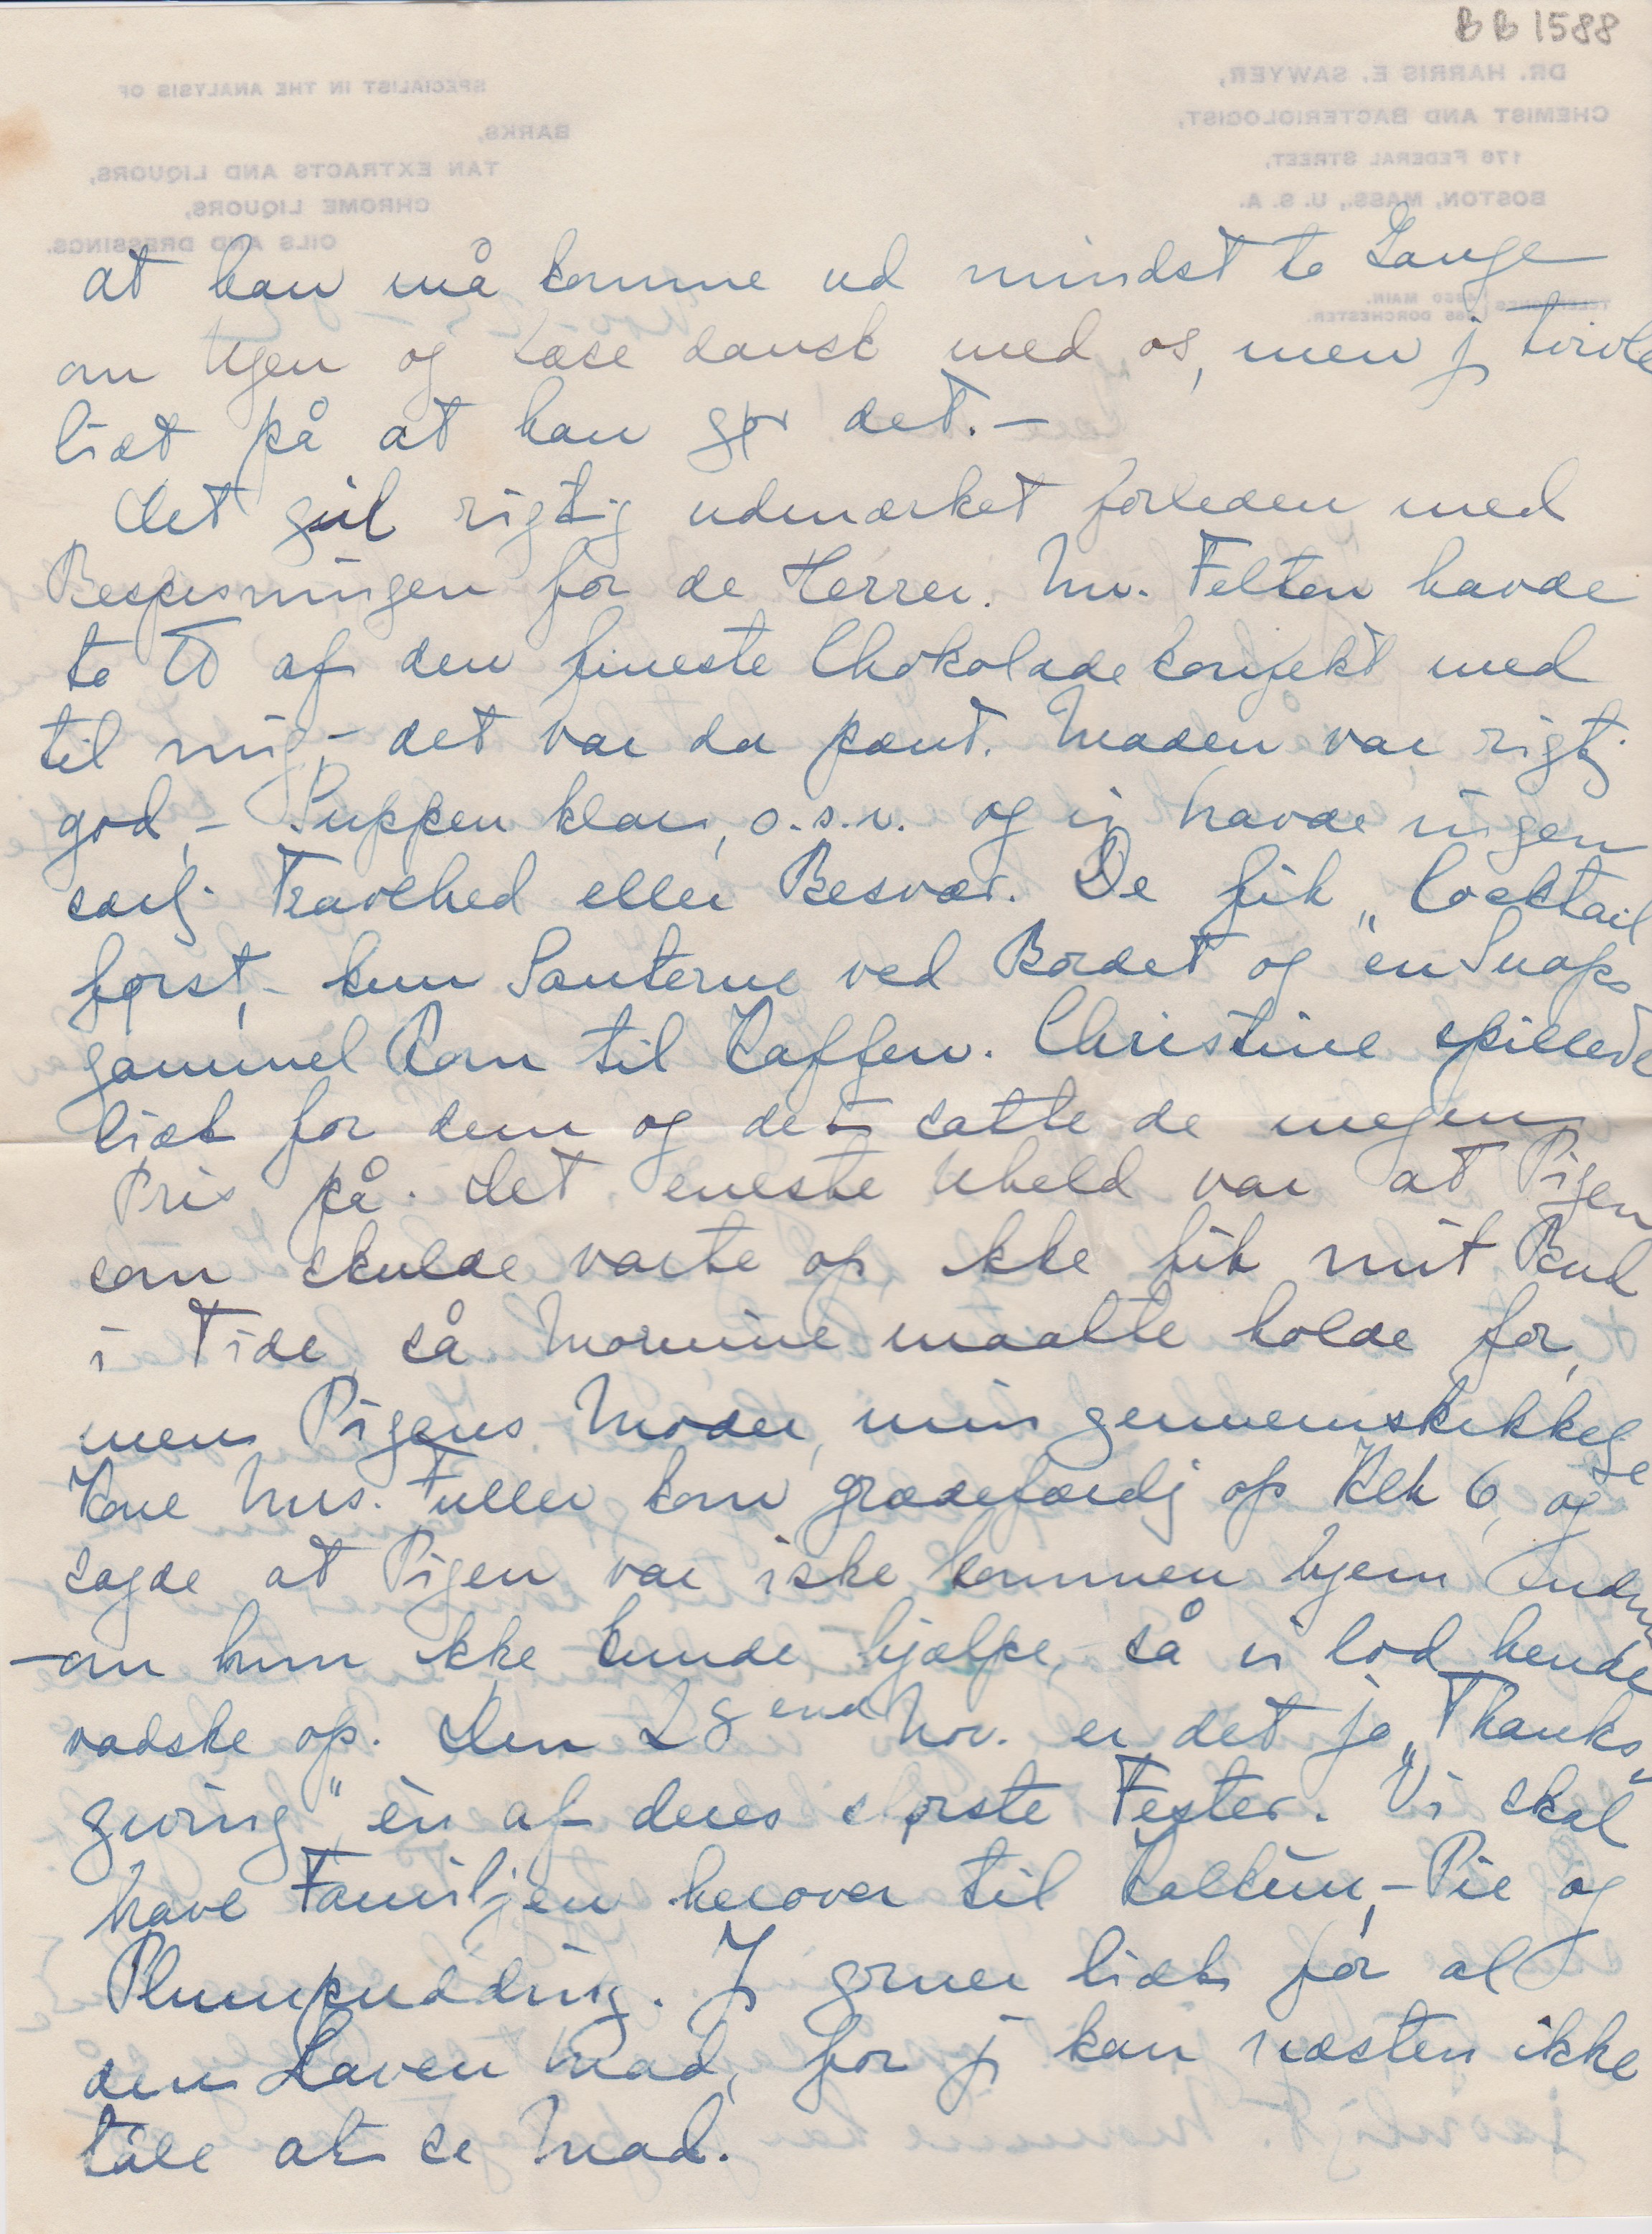 BB 1588
DR. HARRIS E. SAWYER,
CHEMIST AND BACTERIOLOGIST,
176 FEDERAL STREET,
BOSTON, MASS., U. S. A.
SPECIALIST IN THE ANALYSIS OF
BARKS,
TAN EXTRACTS AND LIQUORS,
CHROME LIQUORS,
OILS AND DRESSINGS.
TELEPHONES MAIN.
DORCHESTER.
at han må komme ud mindst to Gange
om Ugen og læse dansk med os, men j tvivle
lidt på at han gør det. –
Det gik rigtig udmærket forleden med
Bespisningen for de Herrer. Mr. Felton havde
to ℔ af den fineste Chokoladekonfekt med
til mig, – det var da pænt. Maden var rigtj
god, – Suppen klar, o.s.v. og vi havde ingen
særlj Travlhed eller Besvær. De fik „Cocktail
først, – kun Sauterne ved Bordet og "en Snaps
gammel Rom til Kaffen. Christine spillede
lidt for dem og det satte de megen
Pris på. Det eneste Uheld var at Pigen
som skulde varte op ikke fik mit Bud
i Tide, så Mornine maatte holde for,
men Pigens Moder, min gennemskikkelige
Kone Mrs. Fuller kom grædefærdj op Klk 6, og
sagde at Pigen var ikke kommen hjem
– om hun ikke kunde hjælpe, – så vi lod hende
vadske op. Den 28 Nov. er det jo „Thanks-
giving" én af deres største Fester. Vi skal
have Familjen herover til Kalkun, – Pie og
Plumpudding. J gruer lidt for al
den Laven Mad, for j kan næsten ikke
tåle at se Mad.